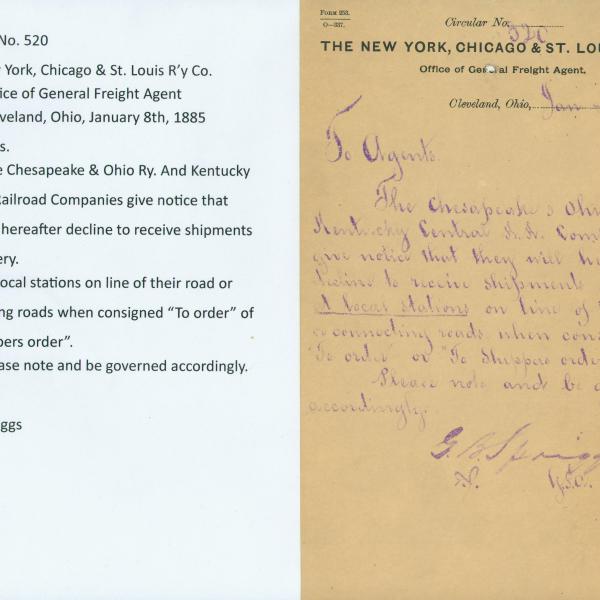 No. 520
York, Chicago & St. Louis R'y Co.
ice of General Freight Agent
veland, Ohio, January 8th, 1885
s.
e Chesapeake & Ohio Ry. And Kentucky
Railroad Companies give notice that
hereafter decline to receive shipments
ery.
ocal stations on line of their road or
ng roads when consigned “To order” of
pers order”.
ase note and be governed accordingly.
ggs
FORM 253.
O—337.
Circular No. 520
THE NEW YORK, CHICAGO & ST. LOU
Office of General Freight Agent.
Cleveland, Ohio, Jan
To Agents.
The Chesapeake & Ohi
Kentucky Central R.R. Com
give notice that they will he
decline to receive shipments
At local stations on line of t
or connecting roads when cons
"To order" or "To Shippers orde
Please note and be g
accordingly.
G. B. Sprigg